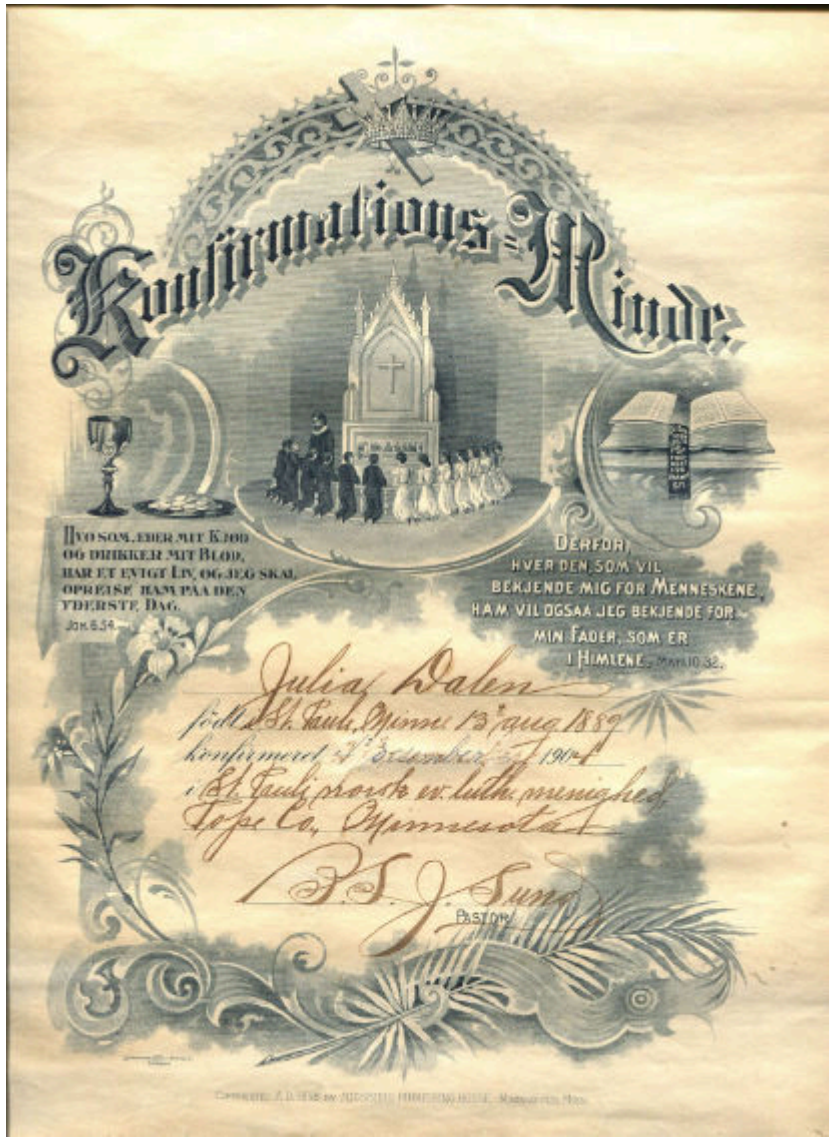 Konfirmations=Minde.
HVO SOM ÆDER MIT KJØD
OG DRIKKER MIT BLOD,
HAR ET EVIGT LIV, OG JEG SKAL
OPREISE HAM PAA DEN
YDERSTE DAG.
JOH. 6.54.
DERFOR,
HVER DEN, SOM VIL
BEKJENDE MIG FOR MENNESKENE,
HAM VIL OGSAA JEG BEKJENDE FOR
MIN FADER, SOM ER
I HIMLENE. MATH. 10.32.
Julia Dalen
født i St. Paul, Minne 13 aug 1889
konfirmeret December 1904
i St. Pauli norsk ev. luth. menighed,
Pope Co., Minnesota
PASTOR
COPYRIGHTED A.D. 1898 BY AUGSBURG PUBLISHING HOUSE, MINNEAPOLIS, MINN.